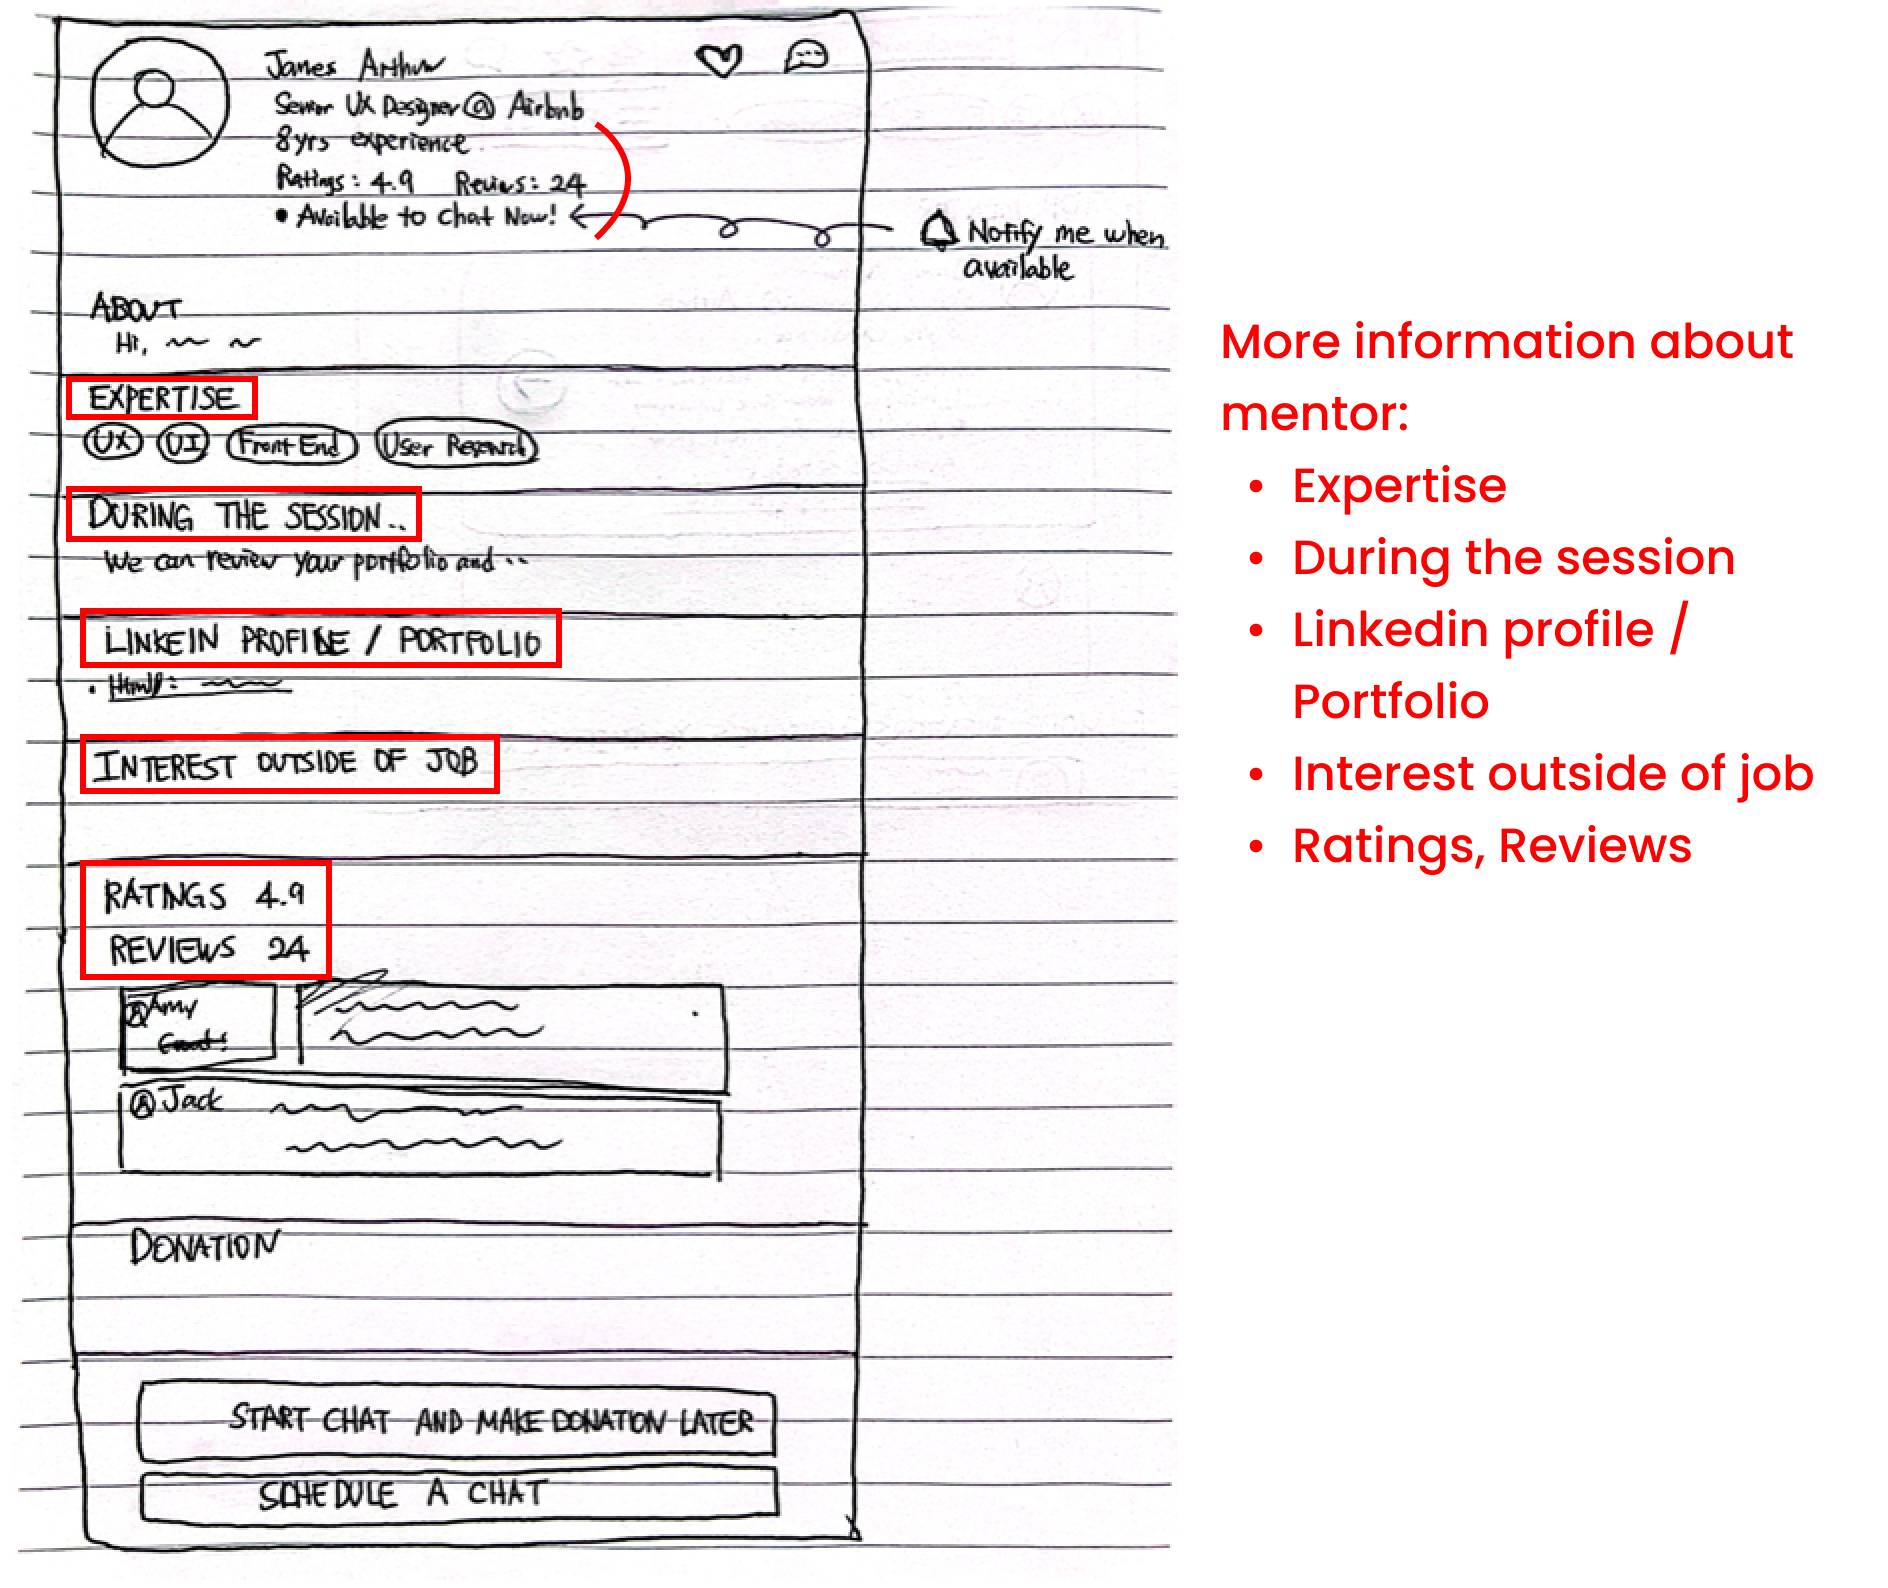 James Arthur
Senior UX Designer @ Airbnb
8yrs experience
Ratings: 4.9 Reviws: 24
• Available to Chat Now!
Notify me when
available
ABOUT
Hi,
EXPERTISE
UX UI Front End User Research
DURING THE SESSION..
We can review your portfolio and ..
LINKEIN PROFILE / PORTFOLIO
INTEREST OUTSIDE OF JOB
RATINGS 4.9
REVIEWS 24
Amy
Jack
DONATION
START CHAT AND MAKE DONATION LATER
SCHEDULE A CHAT
More information about
mentor:
• Expertise
• During the session
• Linkedin profile /
Portfolio
• Interest outside of job
• Ratings, Reviews